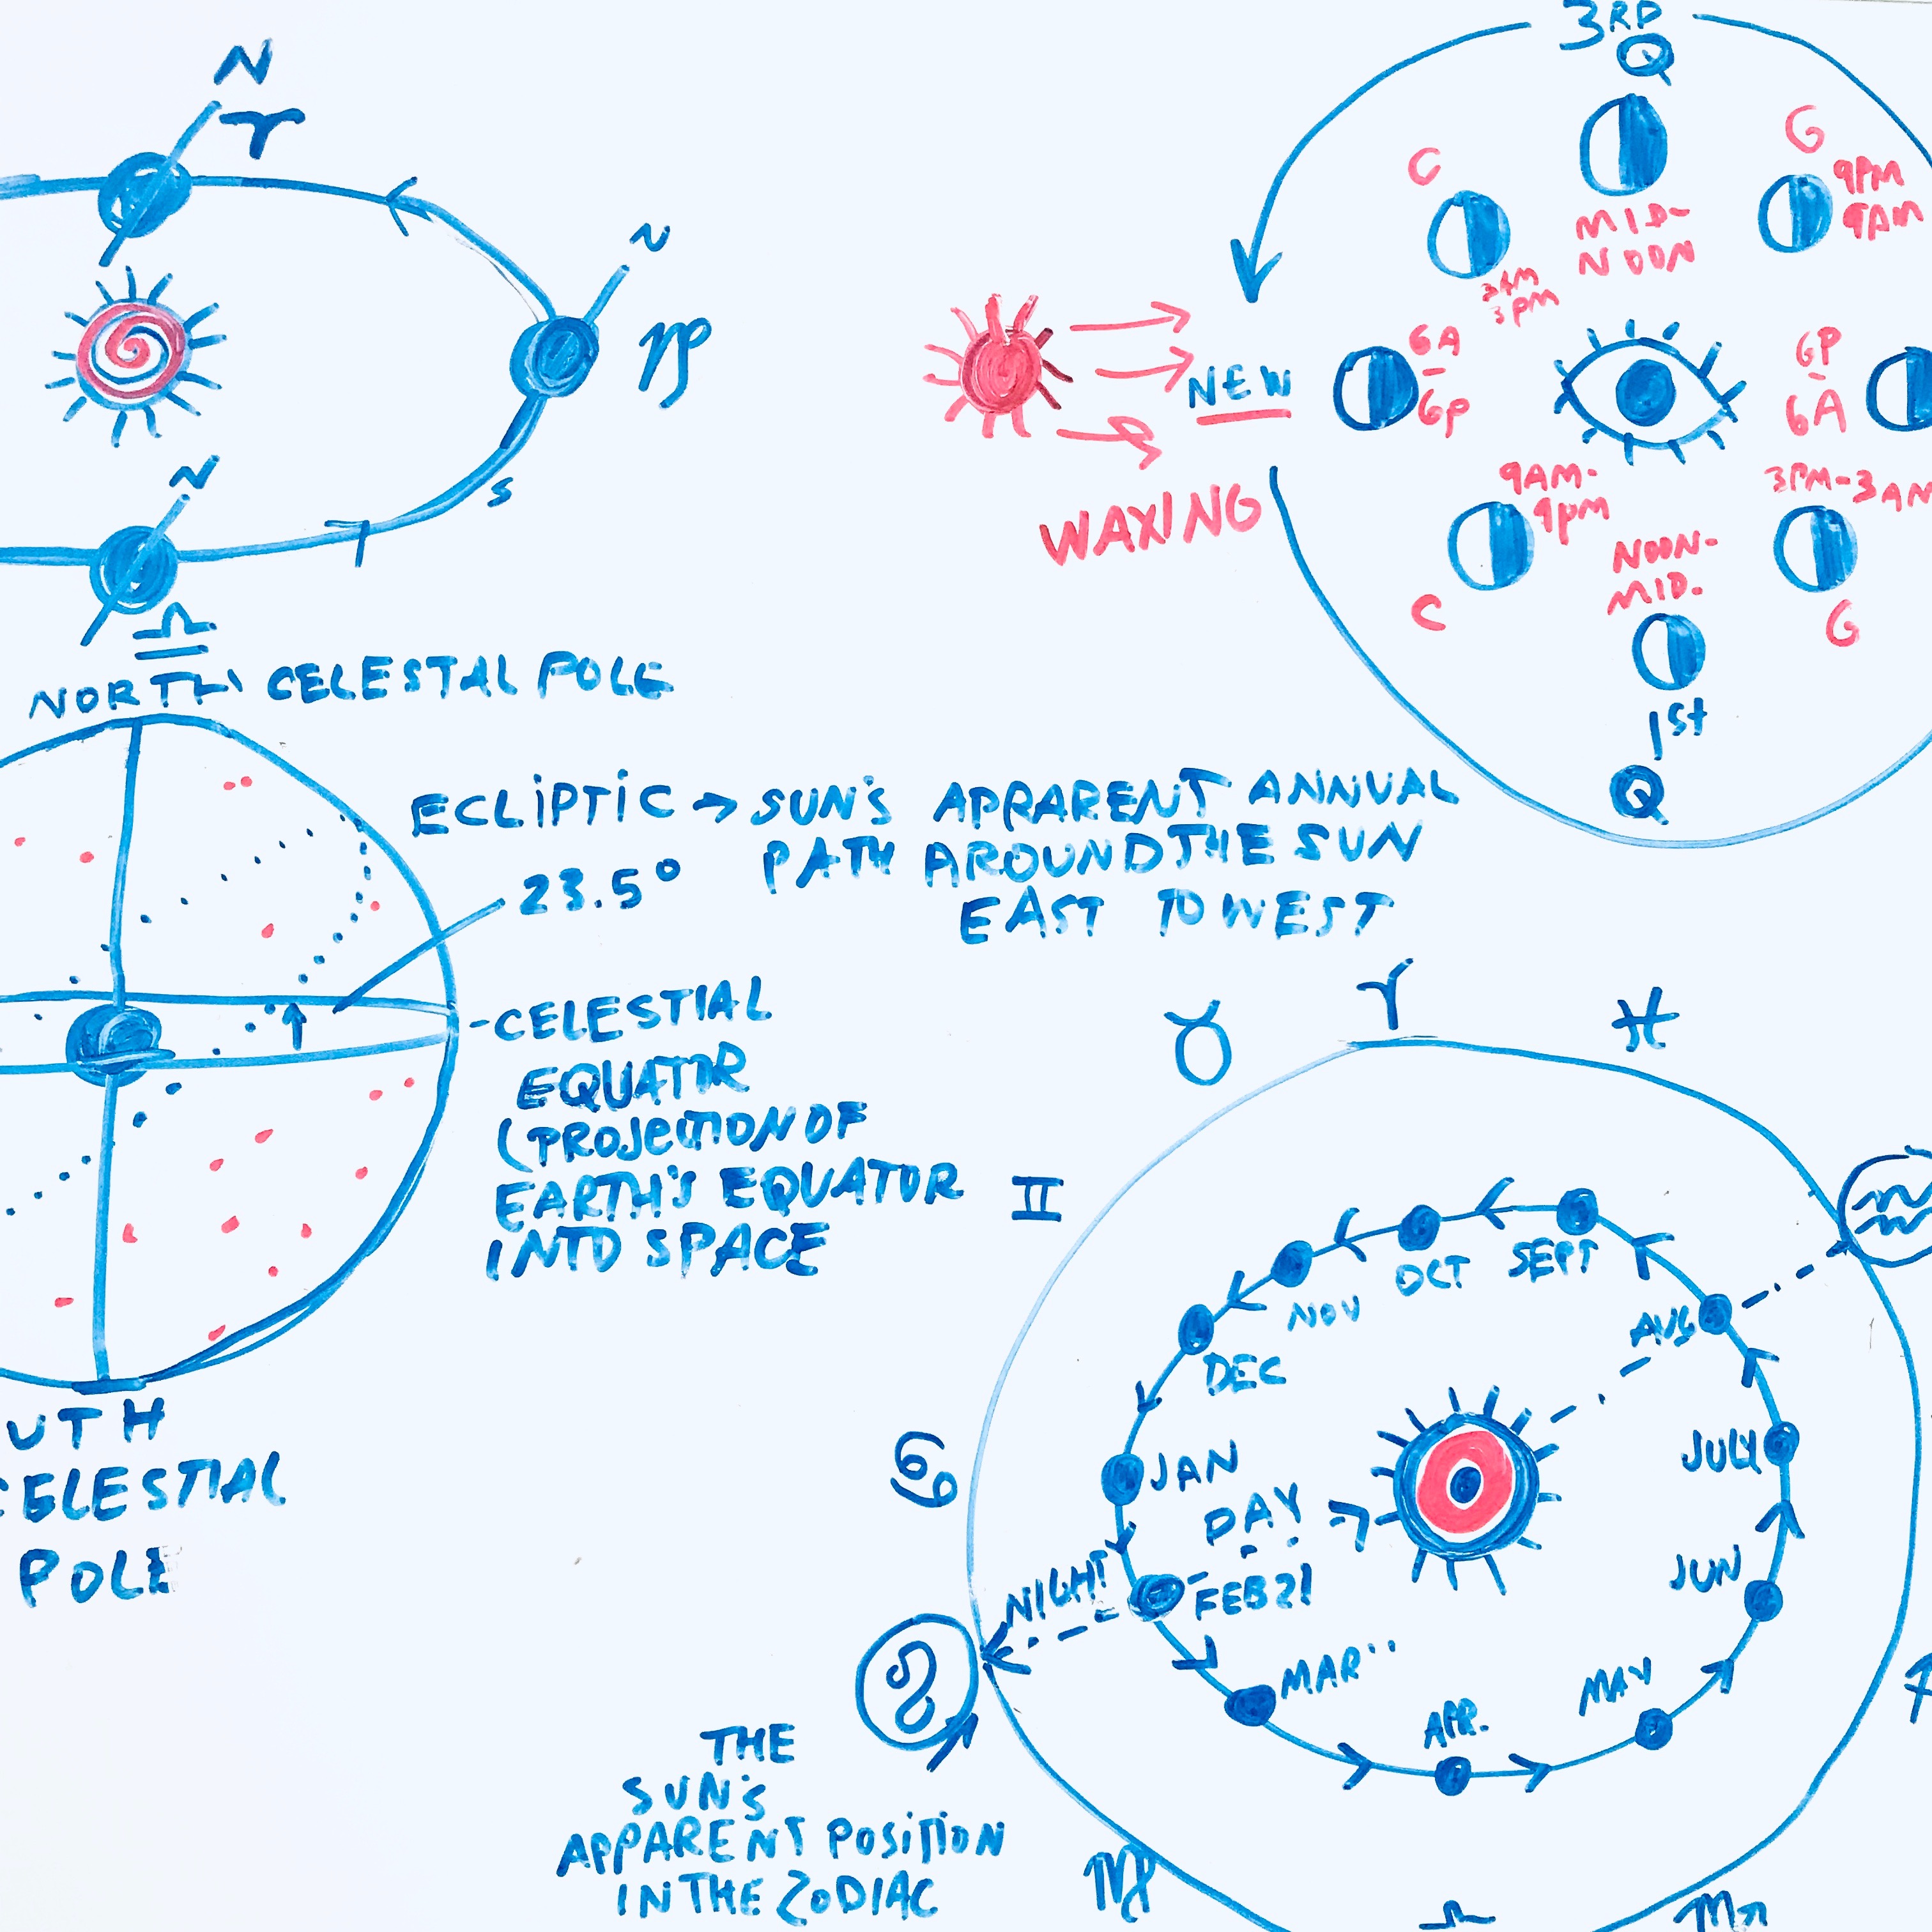 N
N
N
S
NORTH CELESTAL POLE
ECLIPTIC → SUN'S APPARENT ANNUAL
PATH AROUND THE SUN
EAST TO WEST
23.5°
-CELESTIAL
EQUATOR
(PROJECTION OF
EARTH'S EQUATOR
INTO SPACE
UTH
CELESTIAL
POLE
3RD
Q
C
G
9PM
9AM
MID-
NOON
3AM
3PM
NEW
6A
-
6P
6P
-
6A
WAXING
9AM-
9PM
3PM-3AM
NOON-
MID.
C
G
1St
Q
SEPT
OCT
NOV
DEC
AUG
JULY
JAN
DAY
JUN
NIGHT
FEB 21
MAR
MAY
APR.
THE
SUN'S
APPARENT POSITION
IN THE ZODIAC